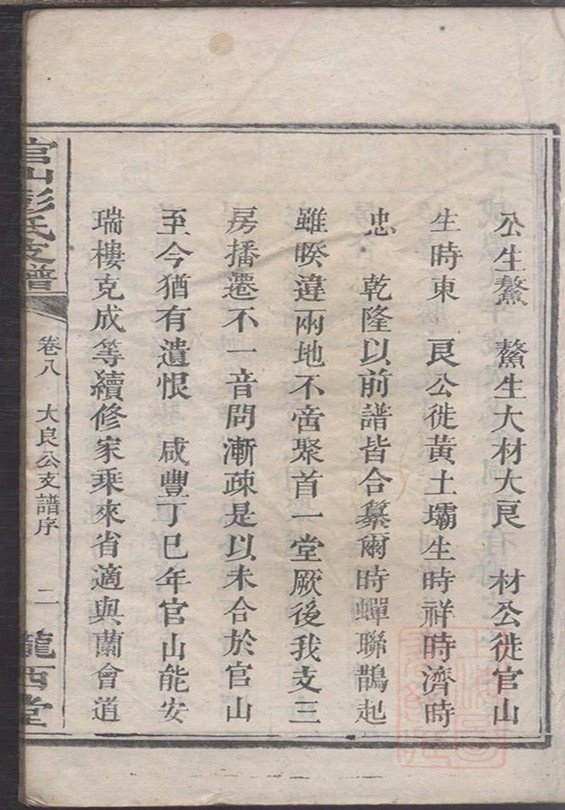 公生鰲　鰲生大材大良　材公徙官山
生時東　良公徙黃土壩生時祥時濟時
忠　乾隆以前譜皆合纂爾時蟬聯鵲起
雖暌違兩地不啻聚首一堂厥後我支三
房播遷不一音問漸疎是以未合於官山
至今猶有遺恨　咸豐丁巳年官山能安
瑞樓克成等續修家乘來省適與蘭會道
官山彭氏支譜
卷八　大良公支譜序　二　隴西堂